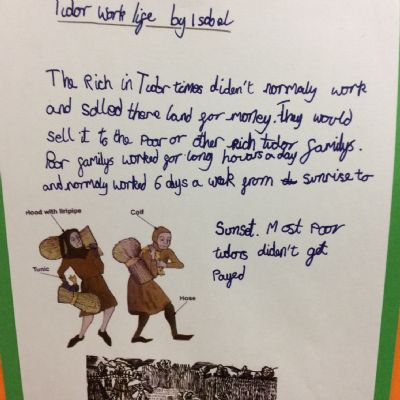 Tudor Work life by Isabel
The Rich in Tudor times diden't normaly work
and solled there land for money. They would
sell it to the Poor or other rich tudor familys.
Poor familys worked for long houers a day
and normaly worked 6 days a week from sunrise to
Sunset. Most Poor
tudors diden't get
Payed
Hood with liripipe
Coif
Tunic
Hose